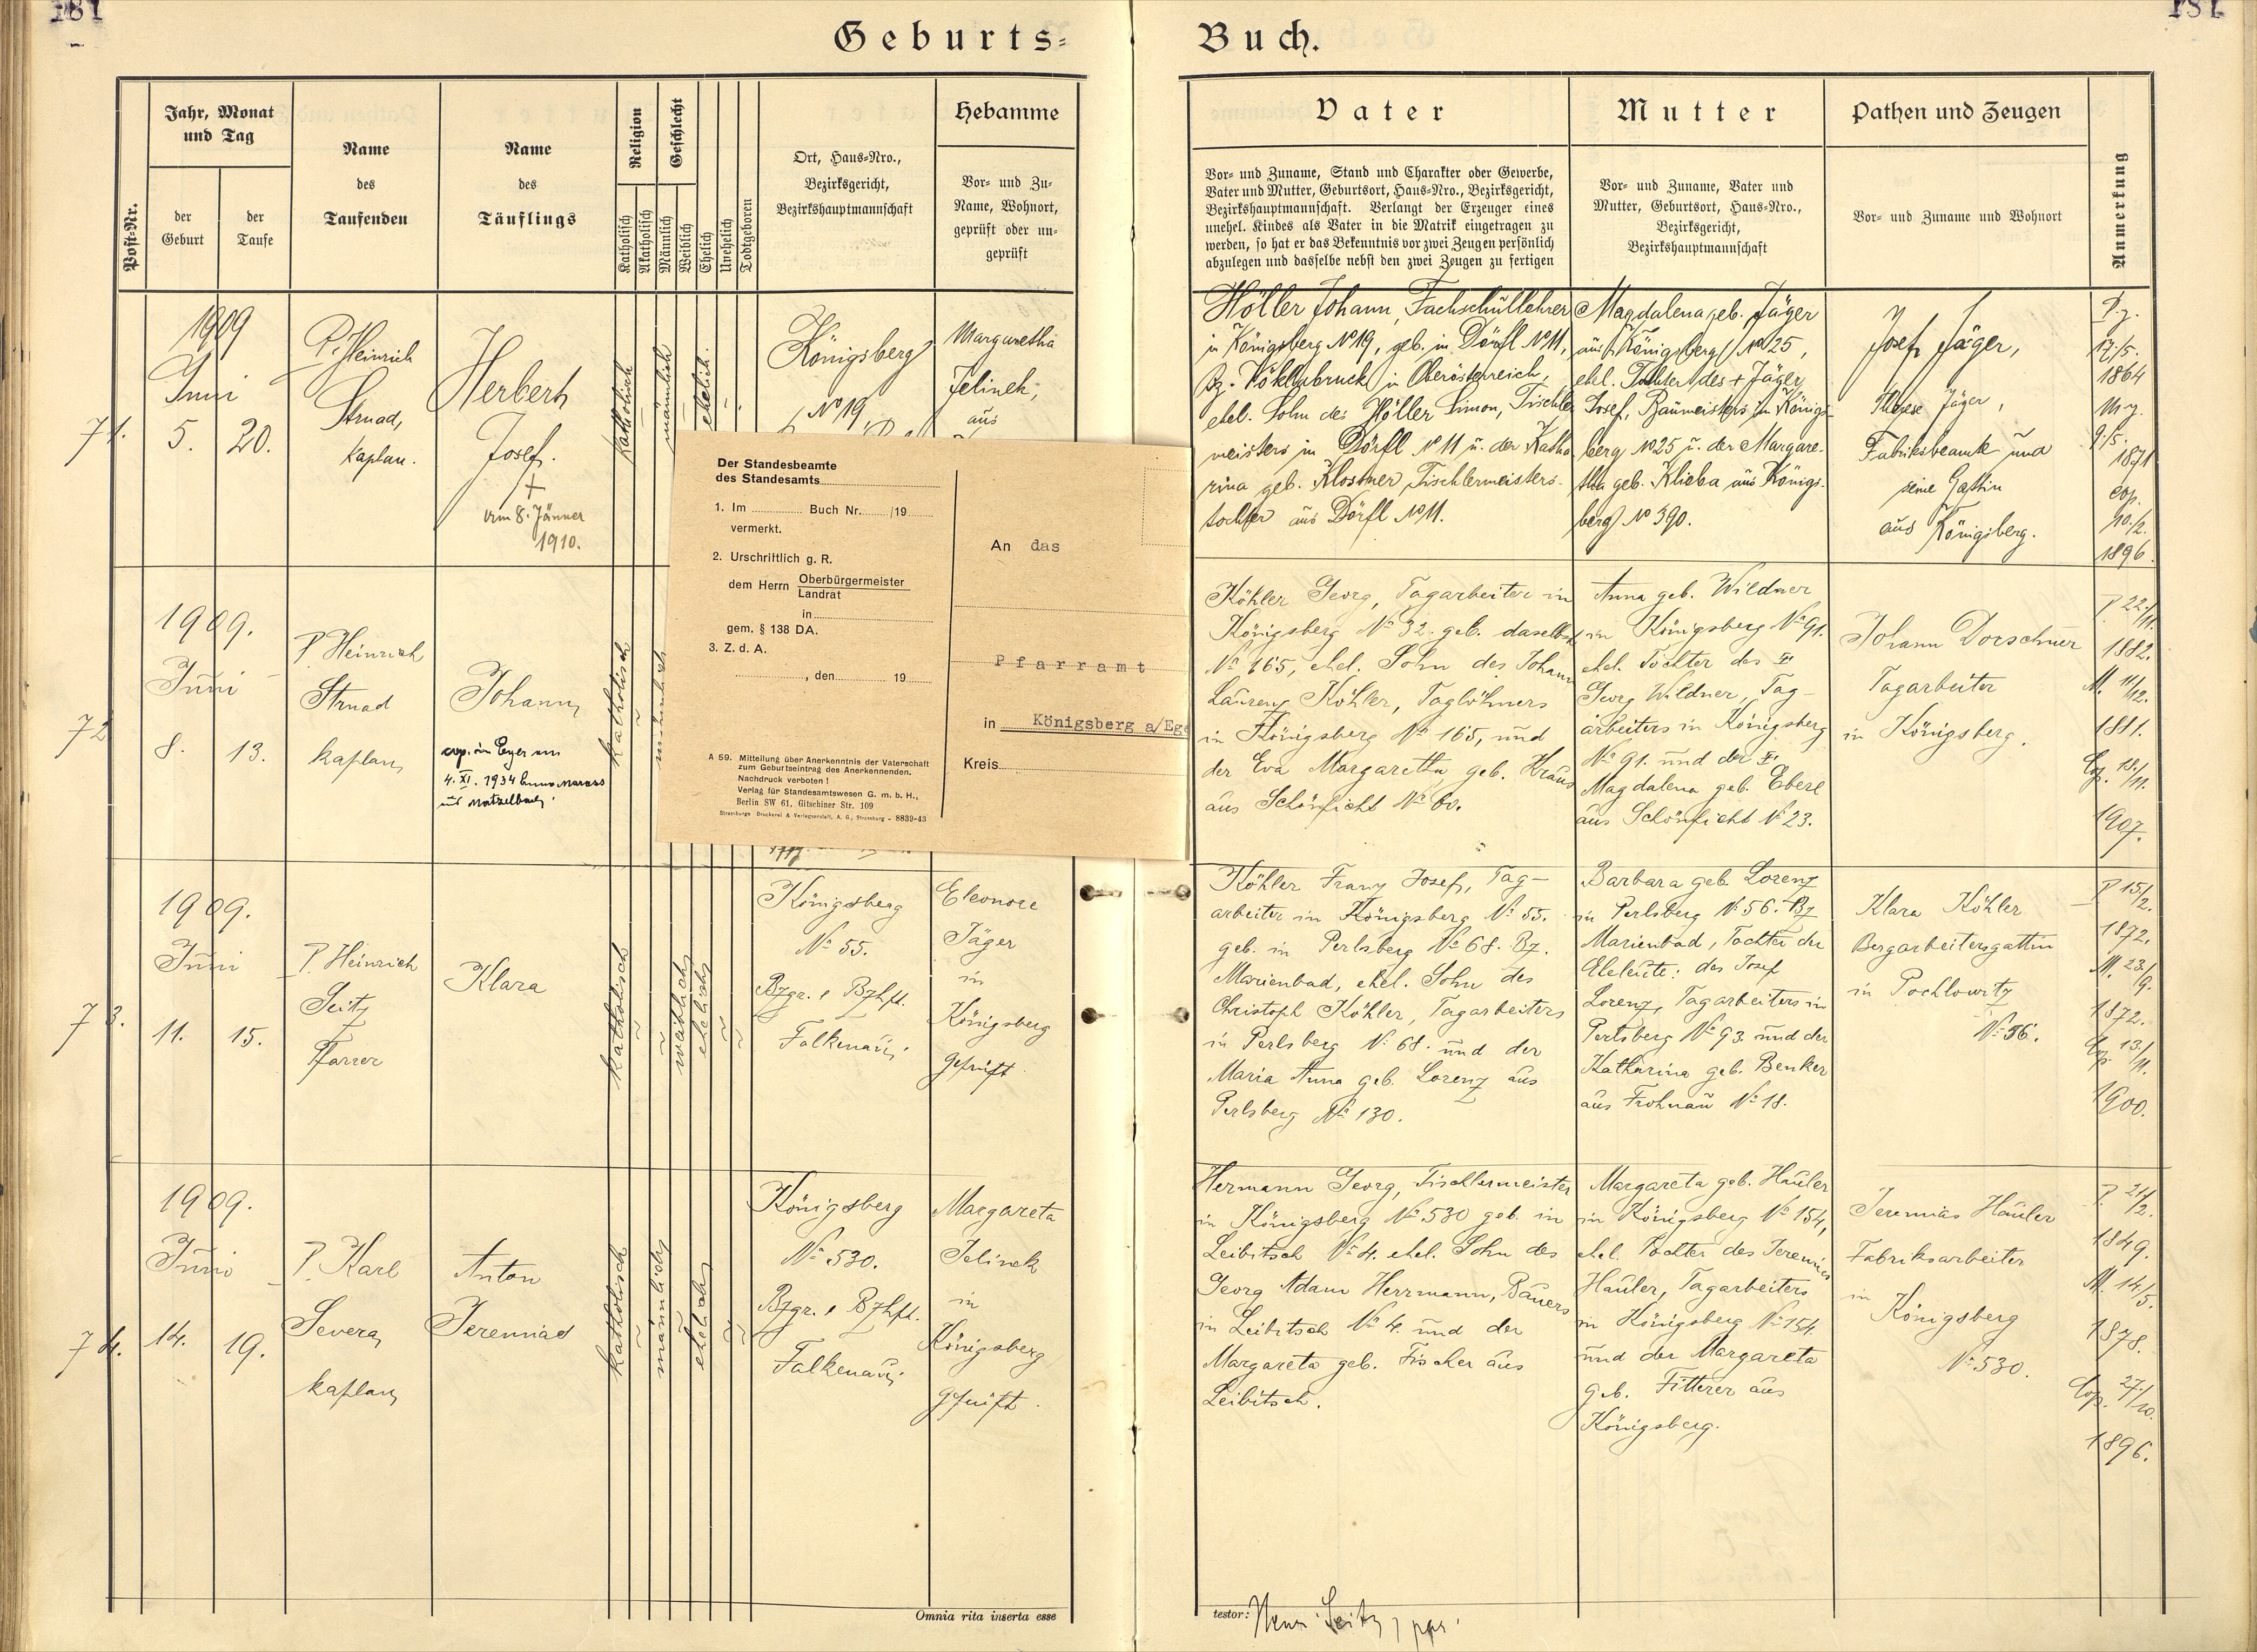 181
181
Geburts=
Buch.
Post-Nr.
Jahr, Monat
und Tag
der
Geburt
der
Taufe
Name
des
Taufenden
Name
des
Täuflings
Religion
Katholisch
Akatholisch
Geschlecht
Männlich
Weiblich
Ehelich
Unehelich
Todtgeboren
Ort, Haus=Nro.,
Bezirksgericht,
Bezirkshauptmannschaft
Hebamme
Vor= und Zu=
Name, Wohnort,
geprüft oder un=
geprüft
Vater
Vor= und Zuname, Stand und Charakter oder Gewerbe,
Vater und Mutter, Geburtsort, Haus=Nro., Bezirksgericht,
Bezirkshauptmannschaft. Verlangt der Erzeuger eines
unehel. Kindes als Vater in die Matrik eingetragen zu
werden, so hat er das Bekenntnis vor zwei Zeugen persönlich
abzulegen und dasselbe nebst den zwei Zeugen zu fertigen
Mutter
Vor= und Zuname, Vater und
Mutter, Geburtsort, Haus=Nro.,
Bezirksgericht,
Bezirkshauptmannschaft
Pathen und Zeugen
Vor= und Zuname und Wohnort
Anmerkung
71.
1909
Juni
5. 20.
P. Heinrich
Strnad,
Kaplan.
Herbert
Josef.
+
am 8. Jänner
1910.
katholisch
männlich
ehelich.
Königsberg
No 19
Margaretha
Jelinek,
aus
Höller Johann, Fachschullehrer
in Königsberg No 19, geb. in Dörfl No 11,
Bz. Vöklabruck in Oberösterreich,
ehel. Sohn des Höller Simon, Tischler
meisters in Dörfl No 11 u. der Katha
rina geb. Klostner, Tischlermeisters-
tochter aus Dörfl No 11.
Magdalena geb. Jäger
aus Königsberg No 25,
ehel. Tochter des + Jäger
Josef, Baumeisters in Königs-
berg No 25 u. der Margare-
tha geb. Klieba aus Königs-
berg No 390.
Josef Jäger,
Therese Jäger,
Fabriksbeamt und
seine Gattin
aus Königsberg.
17./5.
1864
9./5.
1871
cop.
10./2.
1896
Der Standesbeamte
des Standesamts
1. Im Buch Nr. /19
vermerkt.
2. Urschriftlich g. R.
dem Herrn Oberbürgermeister
Landrat
in
gem. § 138 DA.
3. Z. d. A.
, den 19
A 59. Mitteilung über Anerkenntnis der Vaterschaft
zum Geburtseintrag des Anerkennenden.
Nachdruck verboten!
Verlag für Standesamtswesen G. m. b. H.,
Berlin SW 61, Gitschiner Str. 109
Strassburger Druckerei & Verlagsanstalt, A. G., Strassburg - 8839-43
An das
Pfarramt
in Königsberg a/Ege
Kreis
72
1909.
Juni
8. 13.
P. Heinrich
Strnad
Kaplan
Johann
cop. in Eger am
4. XI. 1934
katholisch
männlich
Köhler Georg, Tagarbeiter in
Königsberg No 32. geb. daselbst
No 165, ehel. Sohn des Johann
Laurenz Köhler, Taglöhners
in Königsberg No 165, und
der Eva Margaretha, geb. Kraus
aus Schönficht No 60.
Anna geb. Wildner
in Königsberg No 91.
ehel. Tochter des
Georg Wildner, Tag-
arbeiters in Königsberg
No 91. und der
Magdalena geb. Eberl
aus Schönficht No 23.
Johann Dorschner
Tagarbeiter
in Königsberg.
P. 22./11.
1882.
M. 11/12.
1881.
Cop. 18./11.
1907.
73.
1909.
Juni
11. 15.
P. Heinrich
Seitz
Pfarrer
Klara
katholisch
weiblich
ehelich
Königsberg
No 55.
Bzgr. & Bzhft.
Falkenau.
Eleonore
Jäger
in
Königsberg
geprüft
Köhler Franz Josef, Tag-
arbeiter in Königsberg No 55.
geb. in Perlsberg No 68. Bz.
Marienbad, ehel. Sohn des
Christoph Köhler, Tagarbeiters
in Perlsberg No 68. und der
Maria Anna geb. Lorenz aus
Perlsberg No 130.
Barbara geb. Lorenz
in Perlsberg No 56. Bz
Marienbad, Tochter der
Eheleute: des Josef
Lorenz, Tagarbeiters in
Perlsberg No 93 und der
Katharina geb. Benker
aus Frohnau No 18.
Klara Köhler
Bergarbeitersgattin
in Pochlowitz
No 36.
P. 15/2.
1872.
M. 23./9.
1872.
Cop. 13./11.
1900.
74.
1909.
Juni
14. 19.
P. Karl
Severa
Kaplan
Anton
Jeremias
katholisch
männlich
ehelich
Königsberg
No 530.
Bzgr. & Bzhft.
Falkenau.
Margareta
Jelinek
in
Königsberg
geprüft.
Hermann Georg, Tischlermeister
in Königsberg No 530 geb. in
Leibitsch No 4. ehel. Sohn des
Georg Adam Herrmann, Bauers
in Leibitsch No 4. und der
Margareta geb. Fischer aus
Leibitsch.
Margareta geb. Häuler
in Königsberg No 154,
ehel. Tochter des Jeremias
Häuler, Tagarbeiters
in Königsberg No 154.
und der Margareta
geb. Fitterer aus
Königsberg.
Jeremias Häuler
Fabriksarbeiter
in
Königsberg
No 530.
P. 21./2.
1849.
M. 14./5.
1878.
Cop. 27./10.
1896.
Omnia rita inserta esse
testor: Seitz